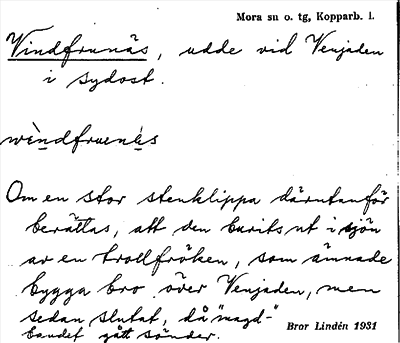 Mora sn o. tg, Kopparb. l.
Vindfrunäs, udde vid Venjaden
i sydost.
wè̱ndfruenés
Om en stor stenklippa därutanför
berättas, att den burits ut i sjön
av en trollfröken, som ämnade
bygga bro över Venjaden, men
sedan slutat, då "magd-"
bandet gått sönder.
Bror Lindén 1931